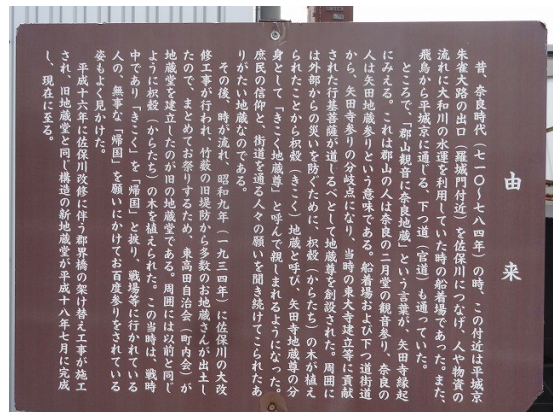 由来
昔、奈良時代（七一〇〜七八四年）の時、この付近は平城京
朱雀大路の出口（羅城門付近）を佐保川につなげ、人や物資の
流れに大和川の水運を利用していた時の船着場であった。また、
飛鳥から平城京に通じる、下つ道（官道）も通っていた。
ところで、「郡山観音に奈良地蔵」という言葉が、矢田寺縁起
にみえる。これは郡山の人は奈良の二月堂の観音参り、奈良の
人は矢田地蔵参りという意味である。船着場および下つ道街道
から、矢田寺参りの分岐点になり、当時の東大寺建立等に貢献
された行基菩薩が道しるべとして地蔵尊を創設された。周囲に
は外部からの災いを防ぐために、枳殻（からたち）の木が植え
られたことから枳殻（きこく）地蔵と呼び、矢田寺地蔵尊の分
身として「きこく地蔵尊」と呼んで親しまれるようになった。
庶民の信仰と、街道を通る人々の願いを聞き続けてこられたあ
りがたい地蔵なのである。
その後、時が流れ、昭和九年（一九三四年）に佐保川の大改
修工事が行われ、竹薮の旧堤防から多数のお地蔵さんが出土し
たので、まとめてお祭りするため、東高田自治会（町内会）が
地蔵堂を建立したのが旧の地蔵堂である。周囲には以前と同じ
ように枳殻（からたち）の木を植えられた。この当時は、戦時
中であり「きこく」を「帰国」と捩り、戦場等に行かれている
人の、無事な「帰国」を願いにかけてお百度参りをされている
姿もよく見かけた。
平成十六年に佐保川改修に伴う郡界橋の架け替え工事が施工
され、旧地蔵堂と同じ構造の新地蔵堂が平成十八年七月に完成
し、現在に至る。